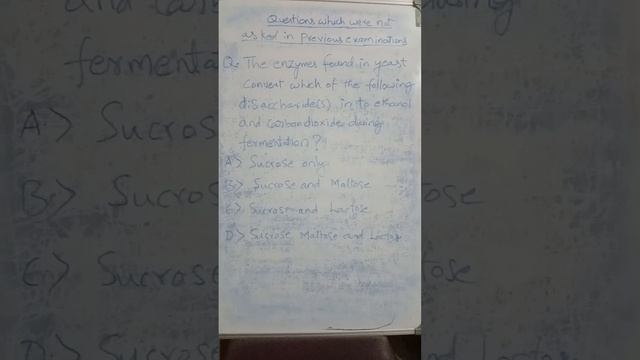 Questions which were not
asked in previous examinations
Q. The enzymes found in yeast
convert which of the following
disaccharide(s) in to ethanol
and carbondioxide during
fermentation?
A> Sucrose only
B> Sucrose and Maltose
C> Sucrose and Lactose
D> Sucrose Maltose and Lactose